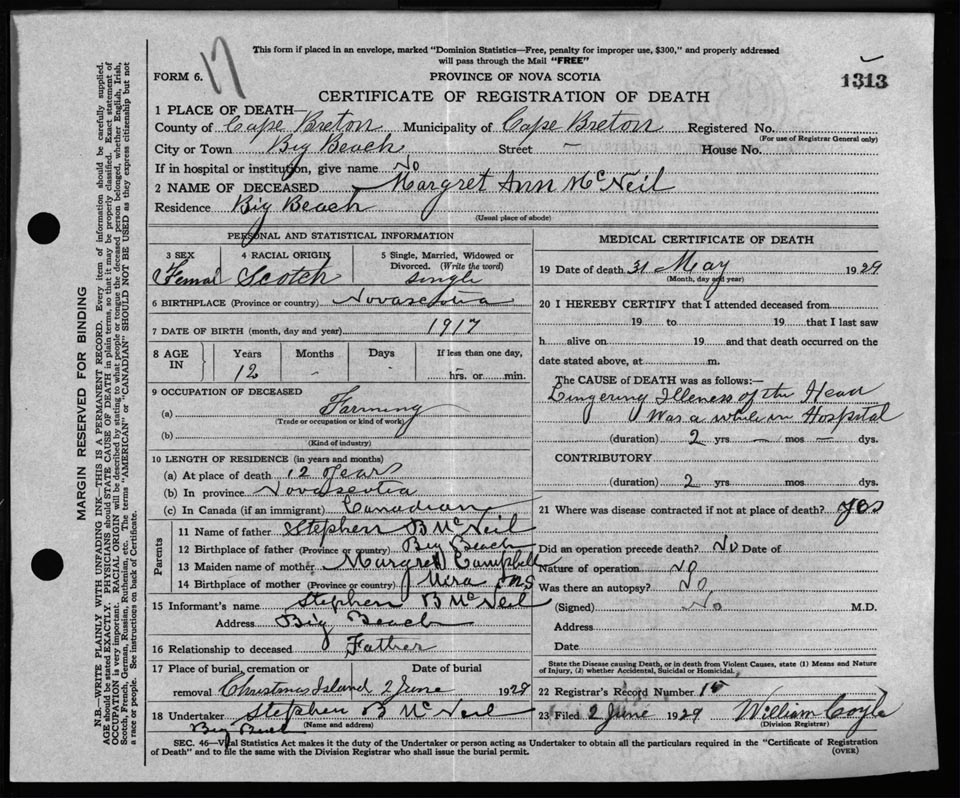 This form if placed in an envelope, marked "Dominion Statistics—Free, penalty for improper use, $300," and properly addressed
will pass through the Mail "FREE"
FORM 6. 17 PROVINCE OF NOVA SCOTIA 1313
CERTIFICATE OF REGISTRATION OF DEATH
1 PLACE OF DEATH—
County of Cape Breton Municipality of Cape Breton Registered No.
(For use of Registrar General only)
City or Town Big Beach Street — House No.
If in hospital or institution, give name No
2 NAME OF DECEASED Margret Ann McNeil
Residence Big Beach
(Usual place of abode)
PERSONAL AND STATISTICAL INFORMATION
3 SEX 4 RACIAL ORIGIN 5 Single, Married, Widowed or
Divorced. (Write the word)
Femal Scotch Single
6 BIRTHPLACE (Province or country) Novascotia
7 DATE OF BIRTH (month, day and year) 1917
8 AGE IN Years Months Days If less than one day,
12 - - hrs. or min.
9 OCCUPATION OF DECEASED
(a) Farming
(Trade or occupation or kind of work)
(b)
(Kind of industry)
10 LENGTH OF RESIDENCE (in years and months)
(a) At place of death 12 Years
(b) In province Novascotia
(c) In Canada (if an immigrant) Canadian
Parents
11 Name of father Stephen B McNeil
12 Birthplace of father (Province or country) Big Beach
13 Maiden name of mother Margret Campbell
14 Birthplace of mother (Province or country) Mira NS
15 Informant's name Stephen B McNeil
Address Big Beach
16 Relationship to deceased Father
17 Place of burial, cremation or Date of burial
removal Christmas Island 2 June 1929
18 Undertaker Stephen B McNeil
(Name and address)
Big Beach
MEDICAL CERTIFICATE OF DEATH
19 Date of death 31 May 1929
(Month, day and year)
20 I HEREBY CERTIFY that I attended deceased from
19 to 19 that I last saw
h alive on 19 and that death occurred on the
date stated above, at m.
The CAUSE of DEATH was as follows:—
Lingering Illeness of the Head
Was a while in Hospital
(duration) 2 yrs — mos — dys.
CONTRIBUTORY
(duration) 2 yrs. mos. dys.
21 Where was disease contracted if not at place of death? yes
Did an operation precede death? No Date of
Nature of operation No
Was there an autopsy? No
(Signed) No M.D.
Address
Date
State the Disease causing Death, or in death from Violent Causes, state (1) Means and Nature
of Injury, (2) whether Accidental, Suicidal or Homicidal.
22 Registrar's Record Number
23 Filed 2 June 1929 William Coyle
(Division Registrar)
SEC. 46—Vital Statistics Act makes it the duty of the Undertaker or person acting as Undertaker to obtain all the particulars required in the "Certificate of Registration
of Death" and to file the same with the Division Registrar who shall issue the burial permit. (OVER)
MARGIN RESERVED FOR BINDING
N.B.—WRITE PLAINLY WITH UNFADING INK—THIS IS A PERMANENT RECORD. Every item of information should be carefully supplied.
AGE should be stated EXACTLY. PHYSICIANS should STATE CAUSE OF DEATH in plain terms, so that it may be properly classified. Exact statement of
OCCUPATION is very important. RACIAL ORIGIN will be described by stating to what people or tongue the deceased person belonged, whether English, Irish,
Scotch, French, German, Russian, Ruthenian, etc. The terms "AMERICAN" or "CANADIAN" SHOULD NOT BE USED as they express citizenship but not
a race or people. See instructions on back of Certificate.